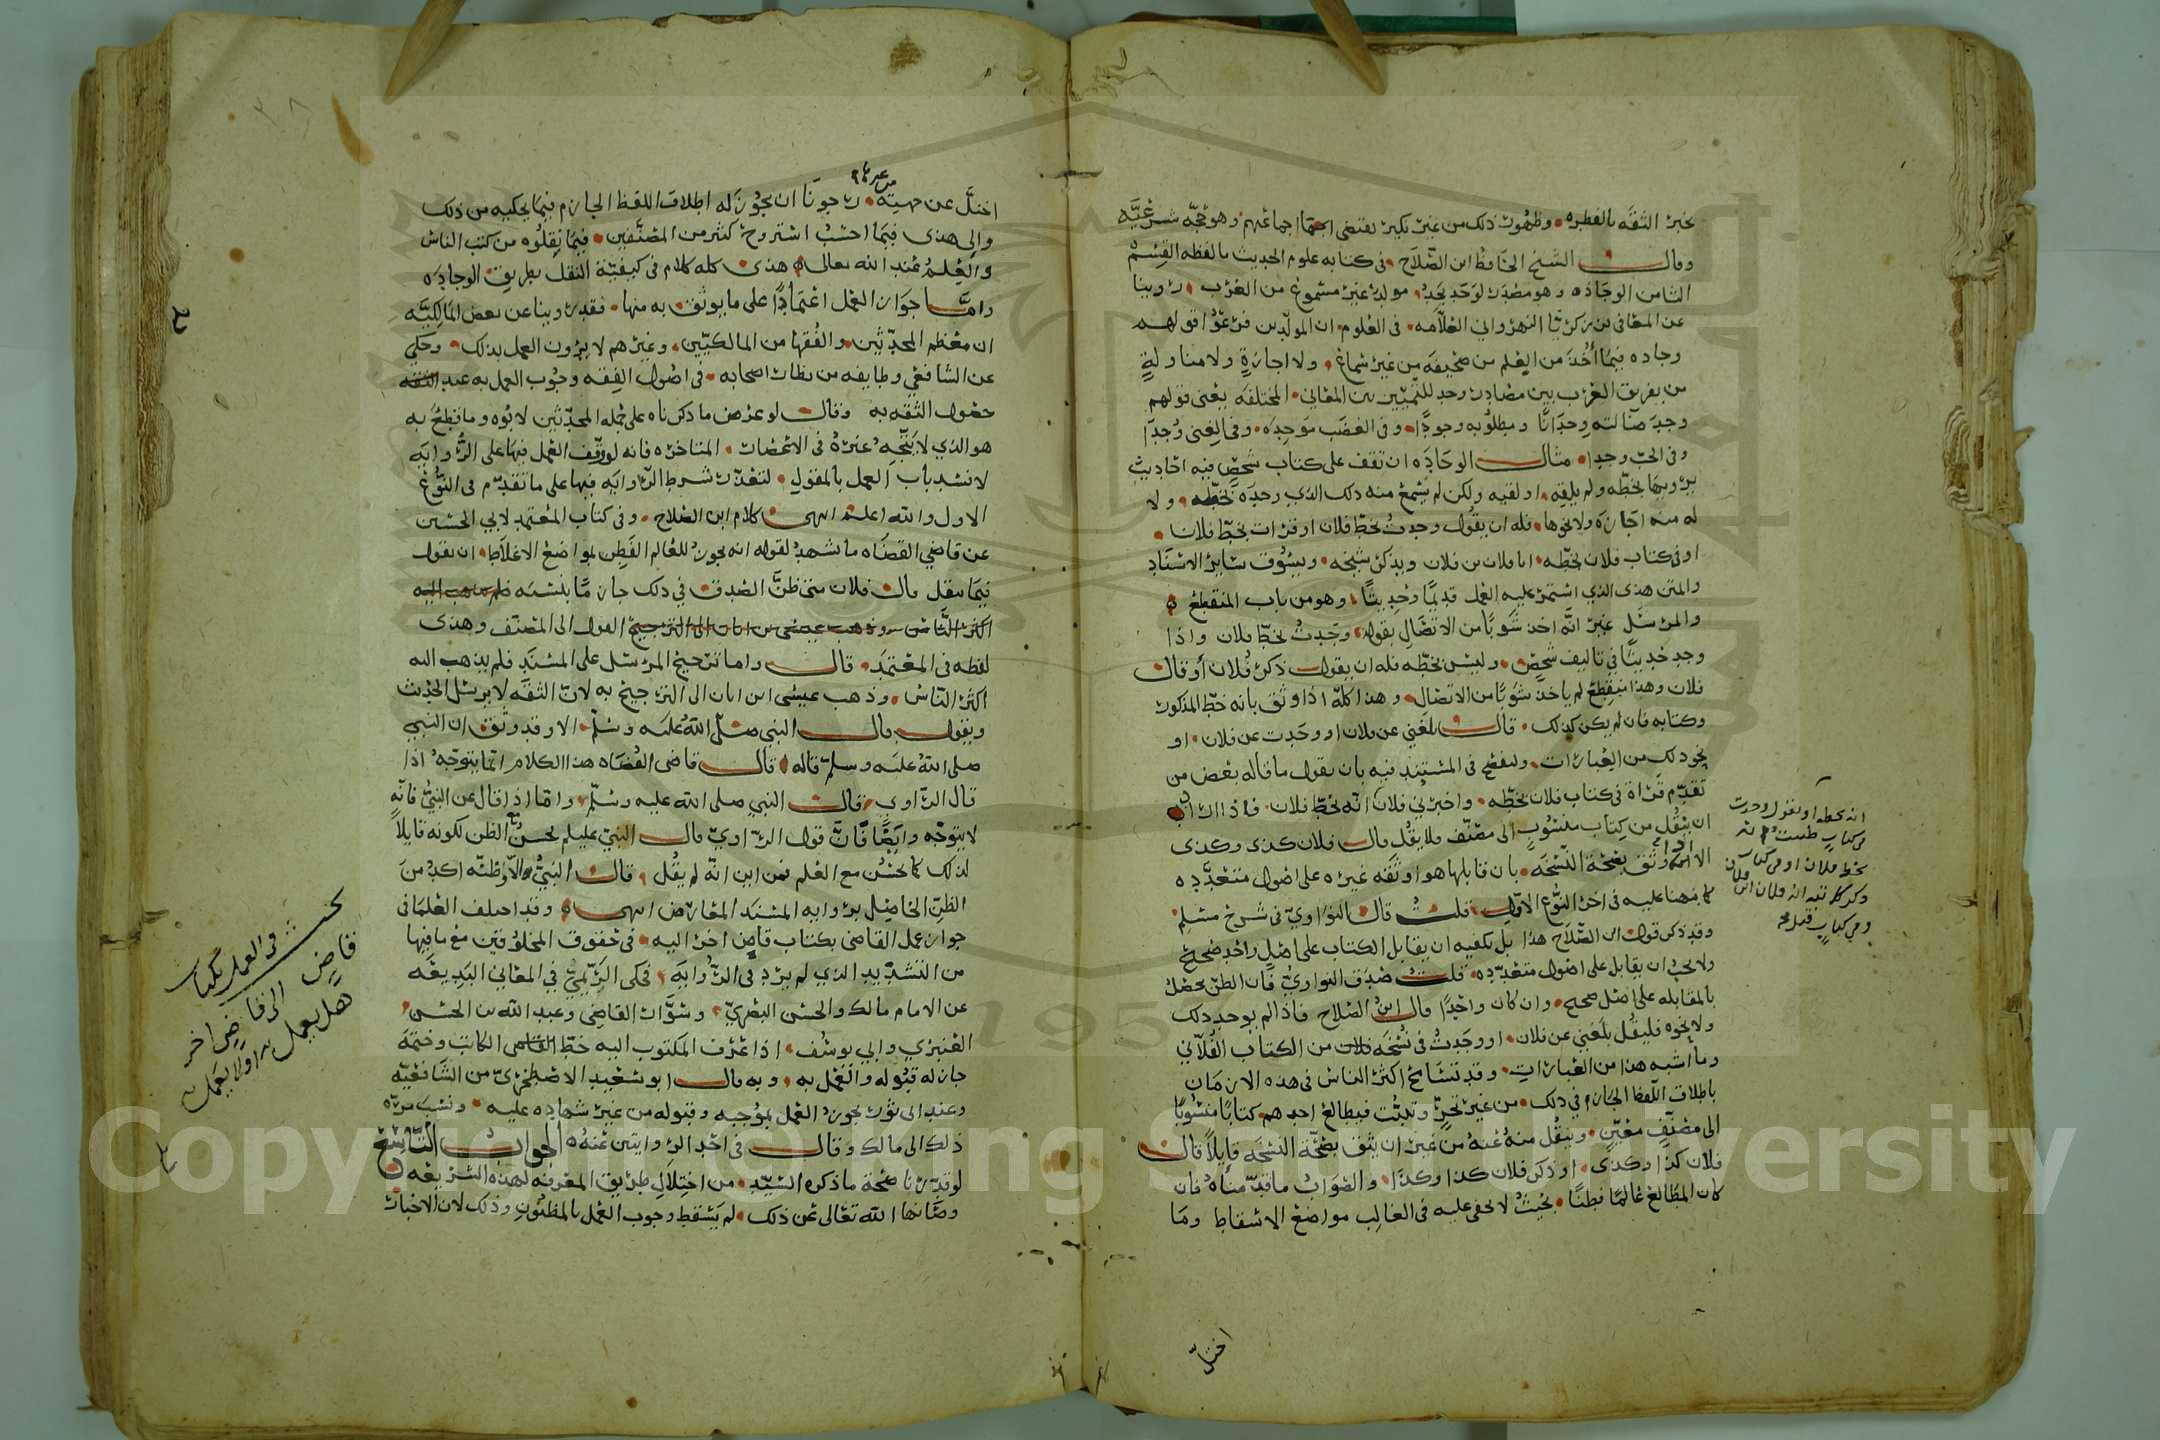 بخبر الثقه بالفطره وظهور ذلك من غير نكير يقتضى اجماعهم وهو حجه شرعيه
وقال الشيخ الحافظ ابن الصلاح في كتابه علوم الحديث ما لفظه القسم
الثامن الوجاده وهو مصدر لوجد يجد مولد غير مسموع من العرب روينا
عن المعافى بن زكريا النهرواني العلامه في العلوم ان المولدين فرعوا قولهم
وجاده فيما أخذ من العلم من صحيفه من غير سماع ولا اجازة ولا مناولة
من تفريق العرب بين مصادر وجد للتمييز بين المعاني المختلفه يعنى قولهم
وجد ضالته وجدانا ومطلوبه وجودا وفى الغضب موجده وفي الغنى وُجدا
وفى الحب وجدا مثال الوجاده ان تقف على كتاب شخص فيه احاديث
يرويها بخطه ولم يلقه او لقيه ولكن لم يسمع منه ذلك الذي وجده بخطه ولا
له منه اجازه ولا نحوها فله ان يقول وجدت بخط فلان او قرات بخط فلان
او في كتاب فلان بخطه انا فلان بن فلان ويذكر شيخه ويسوق ساير الاسناد
والمتن هذى الذي استمر عليه العمل قديما وحديثا وهو من باب المنقطع
والمرسل غير انه اخذ شوبا من الاتصال بقوله وجدت بخط فلان واذا
وجد حديثا في تاليف شخص وليس بخطه فله ان يقول ذكر فلان أو قال
فلان وهذا منقطع لم ياخذ شوبا من الاتصال وهذا كله اذا وثق بانه خط المذكور
وكتابه فان لم يكن كذلك قال بلغني عن فلان او وجدت عن فلان او
نحو ذلك من العبارات وليفصح في المستند فيه بان يقول ما قاله بعض من
تقدم قرأة في كتاب فلان بخطه واخبرني فلان انه بخط فلان فاذا اراد
ان ينقل من كتاب منسوب الى مصنف فلا يقل قال فلان كذى وكذى
الا اذا وثق بصحة النسخه بان قابلها هو او ثقه غيره على اصول متعدده
كما نبهنا عليه في اخر النوع الاول قلت قال النواوي في شرح مسلم
وقد ذكر قول ابن الصلاح هذا بل يكفيه ان يقابل الكتاب على اصل واحد صحيح
ولا يجب ان يقابل على اصول متعدده قلت صدق النواوي فان الظن يحصل
بالمقابله على اصل صحيح وان كان واحدا قال ابن الصلاح فاذا لم يوجد ذلك
ولا نحوه فليقل بلغني عن فلان او وجدت في نسخه من الكتاب الفلاني
وما اشبه هذا من العبارات وقد تسامح اكثر الناس في هذه الازمان
باطلاق اللفظ الجازم في ذلك من غير تحر وتثبت فيطالع احدهم كتابا منسوبا
الى مصنف معين وينقل منه عنه من غير ان يثق بصحة النسخه قايلا قال
فلان كذا وكذى او ذكر فلان كذا وكذا والصواب ما قدمناه فان
كان المطالع عالما فطنا بحيث لا يخفى عليه في الغالب مواضع الاسقاط وما
انه بخطه او يقول وجدت
في كتاب ظننت انه
بخط فلان او في كتاب
ذكر كاتبه انه فلان ابن فلان
وفي كتاب قيل
اختل
اختل عن جهته رجونا ان يجوز له اطلاق اللفظ الجازم فيما يحكيه من ذلك
من غيرها
والى هذى فيما احسب استروح كثير من المصنفين فيما نقلوه من كتب الناس
والعلم عند الله تعالى هذى كله كلام في كيفية النقل بطريق الوجاده
واما جواز العمل اعتمادا على ما يوثق به منها فقد روينا عن بعض المالكيه
ان معظم المحدثين والفقها من المالكيين وغيرهم لا يرون العمل بذلك وحكي
عن الشافعي وطايفه من نظار اصحابه في اصول الفقه وجوب العمل به عند الثقه
حصول الثقه به وقال لو عرض ما ذكرناه على جمله المحدثين لابوه وما قطع به
هو الذي لا يتجه غيره في الاعصار المتاخره فانه لو توقف العمل فيها على الروايه
لانسد باب العمل بالمنقول لتعذر شرط الروايه فيها على ما تقدم في النوع
الاول والله اعلم انتهى كلام ابن الصلاح وفي كتاب المعتمد لابي الحسين
عن قاضي القضاه ما يشهد لقوله انه يجوز للعالم الفطن بمواضع الاغلاط ان يقول
فيما ينقل قال فلان متى ظن الصدق في ذلك جاز فلم يذهب اليه
اكثر الناس وذهب عيسى بن ابان الى الترجيح القول الى المصنف وهذى
لفظه في المعتمد قال واما ترجيح المرسل على المسند فلم يذهب اليه
اكثر الناس وذهب عيسى ابن ابان الى الترجيح به لان الثقه لا يرسل الحديث
ويقول قال النبي صلى الله عليه وسلم الا وقد وثق ان النبي
صلى الله عليه وسلم قاله قال قاضى القضاه هذا الكلام انما يتوجه اذا
قال الراوي قال النبي صلى الله عليه وسلم واما اذا قال عن النبي فانه
لا يتوجه وايضا فان قول الراوي قال النبي عليلم يحسن مع الظن لكونه قايلا
لذلك كما يحسن مع العلم فمن اين انه لم يقل قال النبي الا وظنه اكد من
الظن الحاصل بروايه المسند المعارض انتهى وقد اختلف العلما في
جواز عمل القاضى بكتاب قاض اخر اليه في حقوق المخلوقين مع ما فيها
من التشديد الذي لم يرد في الروايه فحكى الريمي في المعاني البديعه
عن الامام مالك والحسن البصري وسوار القاضي وعبد الله بن الحسن
العنبري وابي يوسف اذا عرف المكتوب اليه خط الكاتب وختمه
جاز له قبوله والعمل به وبه قال ابو سعيد الاصطخري من الشافعيه
وعند ابى ثور يجوز العمل بموجبه وقبوله من غير شهاده عليه ونسب مره
ذلك الى مالك وقال في احد الروايتين عنه الجواب التاسع
لو قدرنا صحة ما ذكره السيد من اختلال طريق المعرفه لهذه الشريعه
وصانها الله تعالى عن ذلك لم يسقط وجوب العمل بالمظنون وذلك لان الاخبار
بحث في العمل بكتاب
قاض الى قاض اخر
هل يعمل به اولا يعمل
Copyright © King Saud University